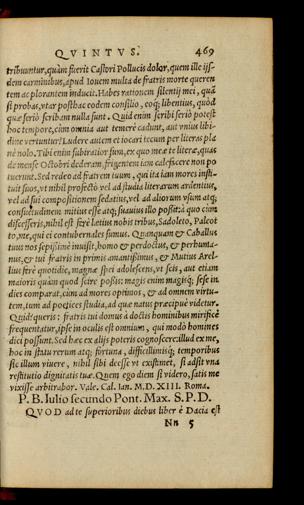 QVINTVS. 469
tribuuntur, quàm fuerit Castori Pollucis dolor, quem ille ijs-
dem carminibus, apud Iouem multa de fratris morte queren
tem ac plorantem inducit. Habes rationem silentij mei, quã
si probas, vtar posthac eodem consilio, eoq; libentius, quòd
quæ seriò scribam nulla sunt. Quid enim scribi seriò potest
hoc tempore, cùm omnia aut temerè cadunt, aut vnius libi-
dine vertuntur? Ludere autem et iocari tecum per literas pla
nè nolo. Tibi enim subiratior sum, ex quo meæ te literæ, quas
de mense Octobri dederam, frigentem iam calefacere non po
tuerunt. Sed redeo ad fratrem tuum, qui ita iam mores insti-
tuit suos, vt nihil profectò vel ad studia literarum ardentius,
vel ad sui compositionem sedatius, vel ad aliorum vsum atq;
consuetudinem mitius esse atq; suauius illo possit: à quo cùm
discesseris, nihil est ferè latius nobis tribus, Sadoleto, Paleot
to, me, qui ei contubernales sumus. Quanquam & Caballus
tuus nos sepissimè inuisit, homo & perdoctus, & perhuma-
nus, & tui fratris in primis amantissimus, & Mutius Arel-
lius ferè quotidie, magnæ spei adolescens, vt scis, aut etiam
maioris quàm quod scire possis: magis enim magisq; sese in
dies comparat, cùm ad mores optimos, & ad omnem virtu-
tem, tum ad poetices studia, ad quæ natus præcipuè videtur.
Quid quæris? fratris tui domus à doctis hominibus mirificè
frequentatur, ipse in oculis est omnium, qui modò homines
dici possunt. Sed hæc ex alijs poteris cognoscere: illud ex me,
hoc in statu rerum atq; fortuna, difficillimisq; temporibus
sic illum viuere, nihil sibi deesse vt existimet, si adsit vna
restitutio dignitatis tuæ. Quem ego diem si videro, satis me
vixisse arbitrabor. Vale. Cal. Ian. M. D. XIII. Roma.
P. B. Iulio secundo Pont. Max. S. P. D.
QVOD ad te superioribus diebus liber è Dacia est
Nn 5